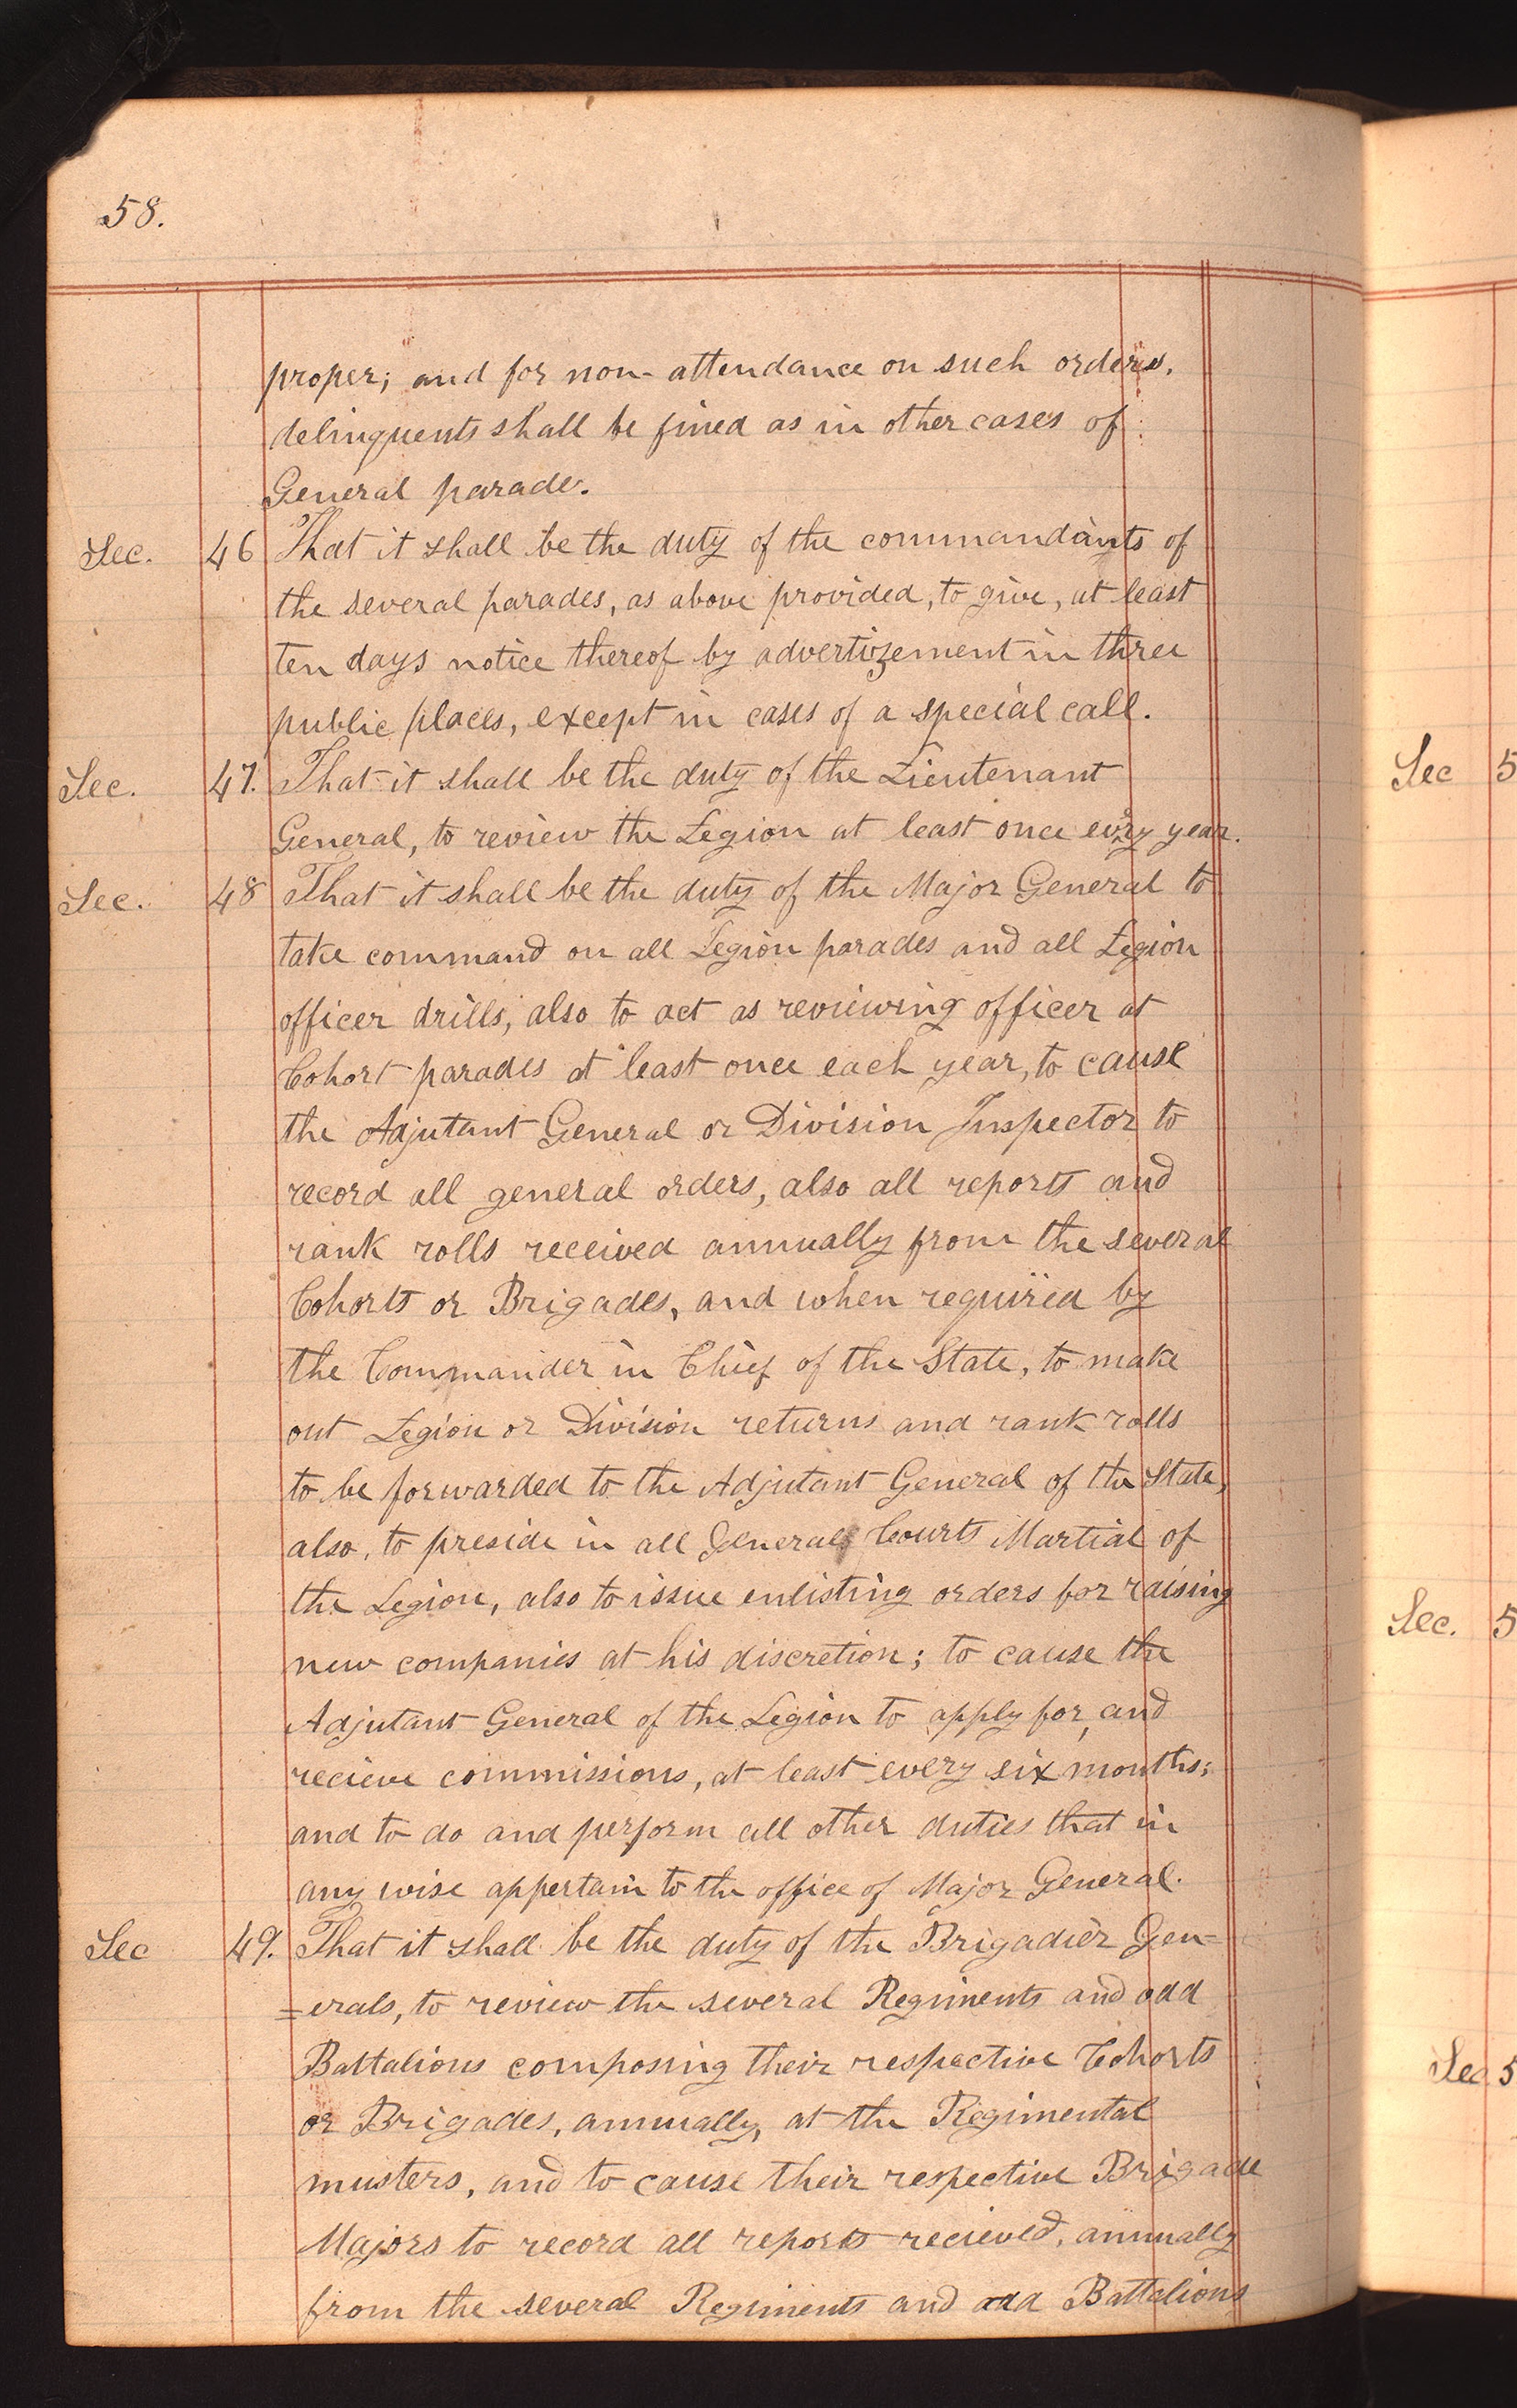 58.
proper; and for non-attendance on such orders,
delinquents shall be fined as in other cases of
General parade.
Sec. 46 That it shall be the duty of the commandants of
the several parades, as above provided, to give, at least
ten days notice thereof by advertizement in three
public places, except in cases of a special call.
Sec. 47. That it shall be the duty of the Lieutenant
General, to review the Legion at least once every year.
Sec. 48 That it shall be the duty of the Major General to
take command on all Legion parades and all Legion
officer drills, also to act as reviewing officer at
Cohort parades at least once each year, to cause
the Adjutant General or Division Inspector to
record all general orders, also all reports and
rank rolls received annually from the several
Cohorts or Brigades, and when required by
the Commander in Chief of the State, to make
out Legion or Division returns and rank rolls
to be forwarded to the Adjutant General of the State,
also, to preside in all General Courts Martial of
the Legion, also to issue enlisting orders for raising
new companies at his discretion; to cause the
Adjutant General of the Legion to apply for, and
recieve commissions, at least every six months;
and to do and perform all other duties that in
any wise appertain to the office of Major General.
Sec 49. That it shall be the duty of the Brigadier Gen=
=erals, to review the several Regiments and odd
Battalions composing their respective Cohorts
or Brigades, annually, at the Regimental
musters, and to cause their respective Brigade
Majors to record all reports recieved, annually
from the several Regiments and odd Battalions
Sec 5
Sec. 5
Sec 5